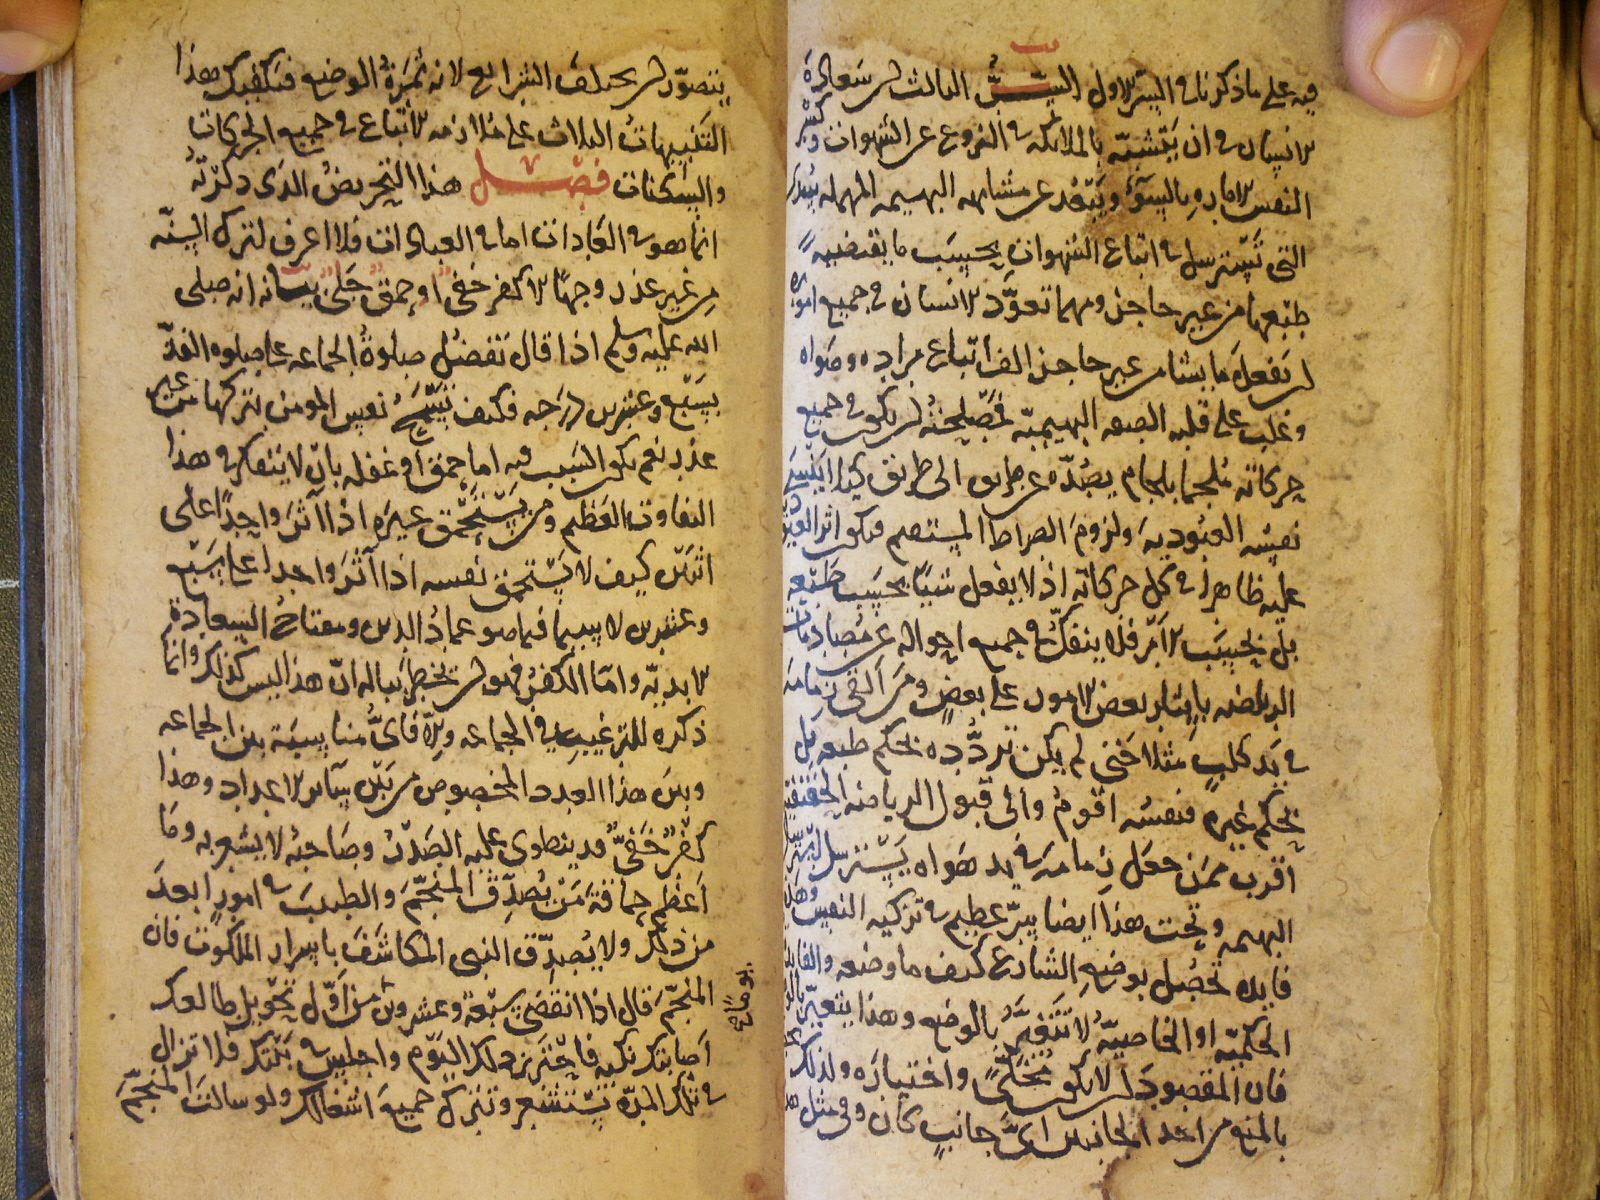 فيه على ما ذكرناه في السر الاول السر الثالث ان سعادة
الانسان في ان يتشبه بالملائكة في النزوع عن الشهوات وكسر
النفس الامارة بالسوء ويبعد عن مشابهة البهيمة المهملة سدى
التي تسترسل في اتباع الشهوات بحسب ما يقتضيه
طبعها من غير حاجز ومهما تعود الانسان في جميع امورة
ان يفعل ما يشا من غير حاجز الف اتباع مراده وهواه
وغلب على قلبه الصفه البهيميه فمصلحته ان يكون في جميع
حركاته ملجما بلجام يصده عن طريق الى طريق كيلا ينسى
نفسه العبودية ولزوم الصراط المستقيم فيكون اثر العبودية
عليه ظاهرا في كل حركاته اذ لا يفعل شيئا بحسب طبعه
بل بحسب الامر فلا ينفك في جميع احواله عن مصادمات
الرياضه بايثار بعض الامور على بعض ومن القى زمامه
في يد كلب مثلا حتى لم يكن تردده بحكم طبعه بل
بحكم غيره فنفسه اقوم والى قبول الرياضه الحقيقية
اقرب ممن جعل زمامه في يد هواه يسترسل استرسال
البهيمه وتحت هذا ايضا سر عظيم في تزكيه النفس وهذه
فايده تحصل بوضع الشارع كيف ما وضعه والفايدة
الحكمية او الخاصية لا تتغير بالوضع وهذا يتغير بالوضع
فان المقصود ان لا يكون مخلى واختياره وذلك
بالمنع من احد الجانبين اي جانب كان وفي مثل هذا
يتصور ان يختلف الشرايع لانه ثمرة الوضع فتكفيك هذا
التنبيهات الثلاث على ملازمه الاتباع في جميع الحركات
والسكنات فصل هذا التحريض الذي ذكرته
انما هو في العادات اما في العبادات فلا اعرف لترك السنه
من غير عذر وجها الا كفر خفي او حمق جلي بيانه انه صلى
الله عليه وسلم اذا قال تفضل صلوة الجماعه على صلوه الفذ
بسبع وعشرين درجه فكيف تسمح نفس المومن بتركها من غير
عذر نعم يكون السبب فيه اما حمق او غفله بان لا يتفكر في هذا
التفاوت العظيم ومن يستحمق غيره اذا آثر واحدا على
اثنين كيف لا يستحمق نفسه اذا آثر واحدا على سبع
وعشرين لا سيما فيما هو عماد الدين ومفتاح السعادة
الابدية واما الكفر فهو ان يخطر بباله ان هذا ليس كذلك وانما
ذكره للترغيب في الجماعه والا فاي مناسبة بين الجماعه
وبين هذا العدد المخصوص من بين سائر الاعداد وهذا
كفر خفي قد ينطوي عليه الصدر وصاحبه لا يشعر به وما
اعظم حماقة من يصدق المنجم والطبيب في امور ابعد
من ذلك ولا يصدق النبي المكاشف باسرار الملكوت فان
المنجم قال اذا انقضى سبعة وعشرون من اول تحويل طالعك
اصابتك نكبه فاحترز ذلك اليوم واجلس في بيتك فلا تزال
في تلك المدة تستشعر وتترك جميع اشغالك ولو سالت المنجم